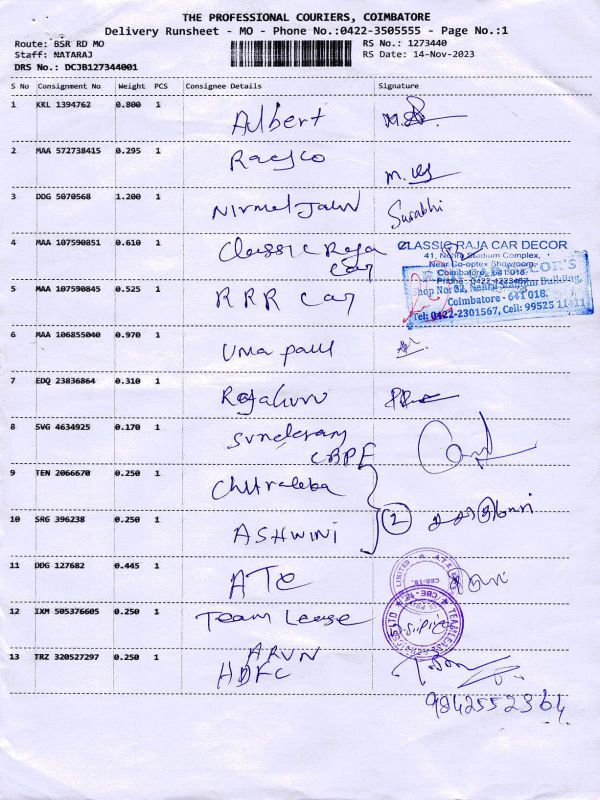 THE PROFESSIONAL COURIERS, COIMBATORE
Delivery Runsheet - MO - Phone No.:0422-3505555 - Page No.:1
Route: BSR RD MO RS No.: 1273440
Staff: NATARAJ RS Date: 14-Nov-2023
DRS No.: DCJB127344001
S No Consignment No Weight PCS Consignee Details Signature
1 KKL 1394762 0.800 1 Albert
2 MAA 572738415 0.295 1
3 DDG 5070568 1.200 1 Nirmal Jain Surabhi
4 MAA 107590851 0.610 1 Classic Raja
Car
CLASSIC RAJA CAR DECOR
41, Nehru Stadium Complex,
Near Co-optex Showroom,
Coimbatore - 641 018.
5 MAA 107590845 0.525 1 RRR Car
Shop No: 62, Nehru Building,
Coimbatore - 641 018.
Tel: 0422-2301567, Cell: 99525 11411
6 MAA 106855040 0.970 1 Uma paul
7 EDQ 23836864 0.310 1
8 SVG 4634925 0.170 1 Sundaram
CBPE
9 TEN 2066670 0.250 1 Chitraleba
2
10 SRG 396238 0.250 1 ASHWINI
11 DDG 127682 0.445 1 ATC
12 IXM 505376605 0.250 1 Team Lease
13 TRZ 320527297 0.250 1 ARUN
HDFC
9842552364